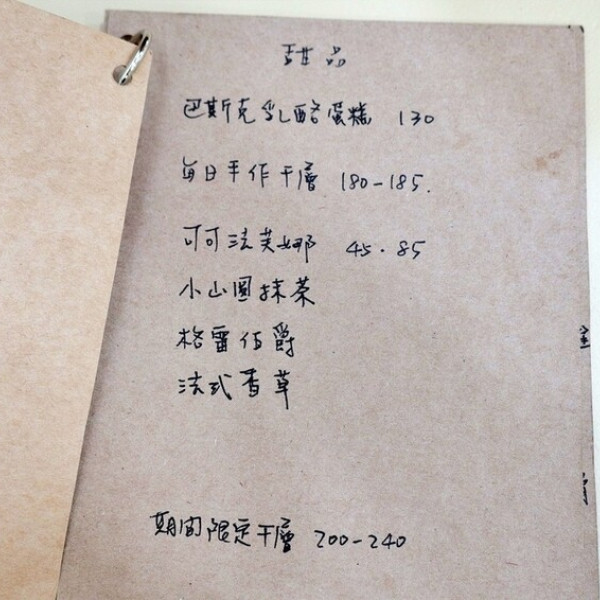 甜品
巴斯克乳酪蛋糕 130
每日手作千層 180-185.
可可法芙娜 45.85
小山園抹茶
格雷伯爵
法式香草
期間限定千層 200-240